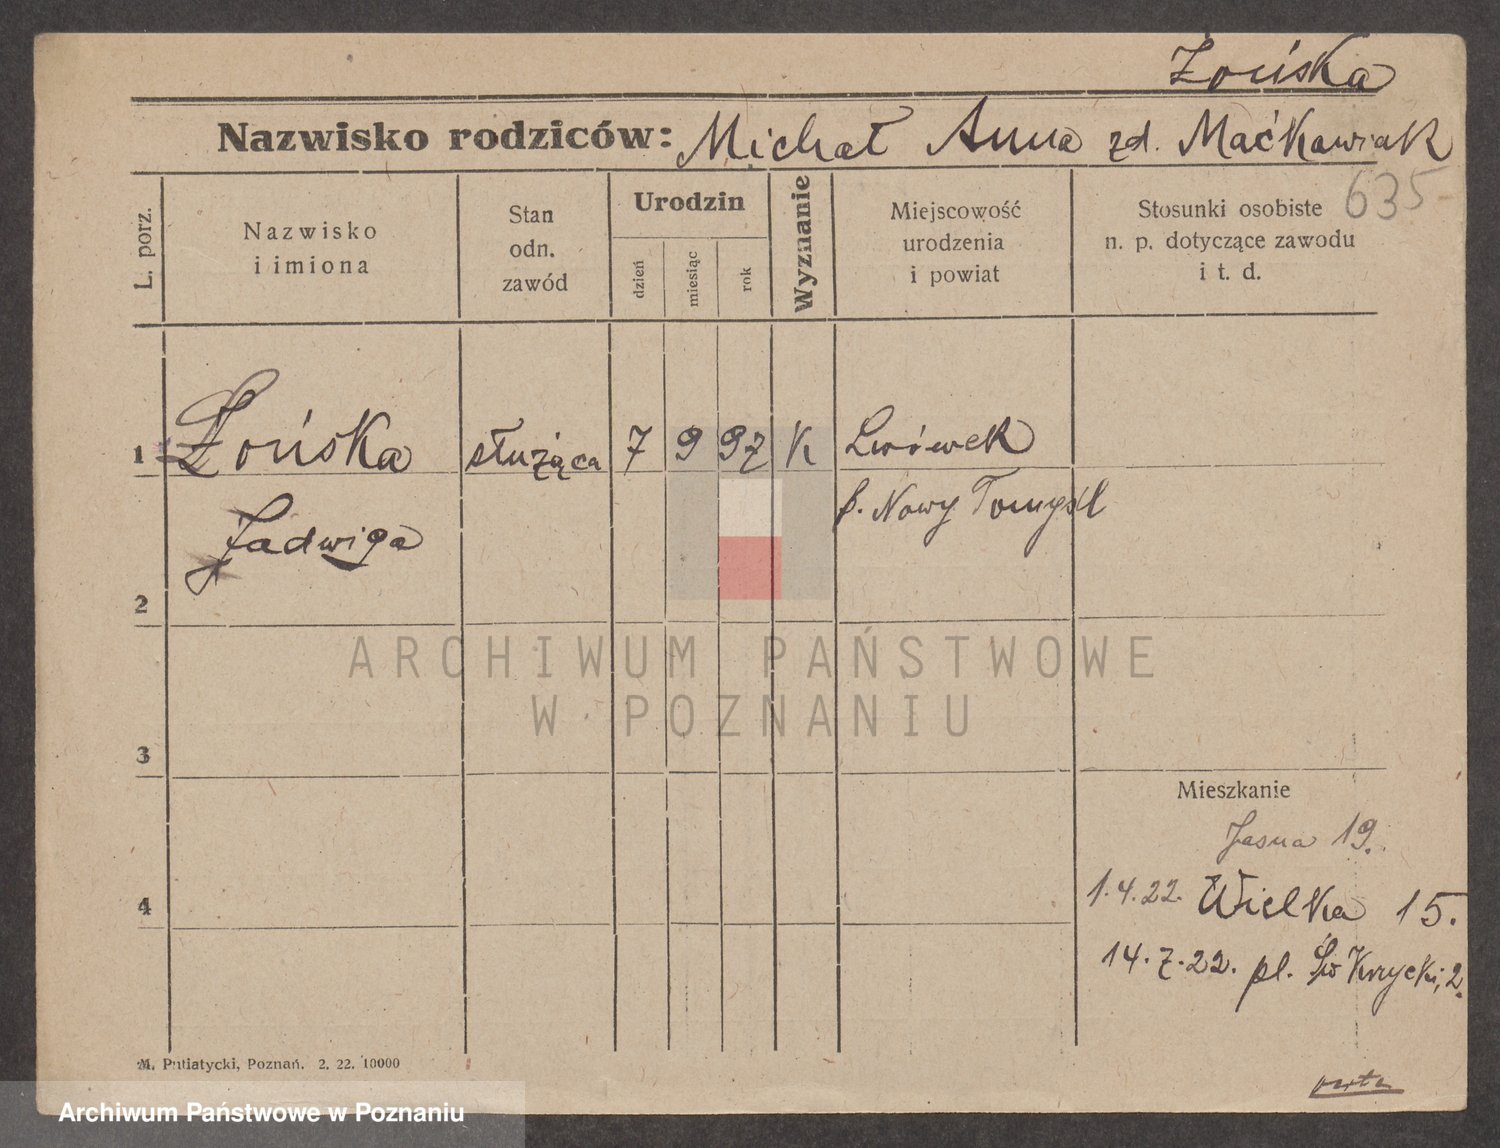 Żońska
Nazwisko rodziców: Michał Anna zd. Maćkowiak
635
L. porz.
Nazwisko
i imiona
Stan
odn.
zawód
Urodzin
dzień
miesiąc
rok
Wyznanie
Miejscowość
urodzenia
i powiat
Stosunki osobiste
n. p. dotyczące zawodu
i t. d.
1 Żońska służąca 7 9 97 K Lwówek
Jadwiga p. Nowy Tomyśl
2
ARCHIWUM PAŃSTWOWE
W POZNANIU
3
Mieszkanie
Jasna 19.
4
1.4.22. Wielka 15.
14.7.22. pl. Św Krzycki, 2.
M. Putiatycki, Poznań. 2. 22. 10000
Archiwum Państwowe w Poznaniu